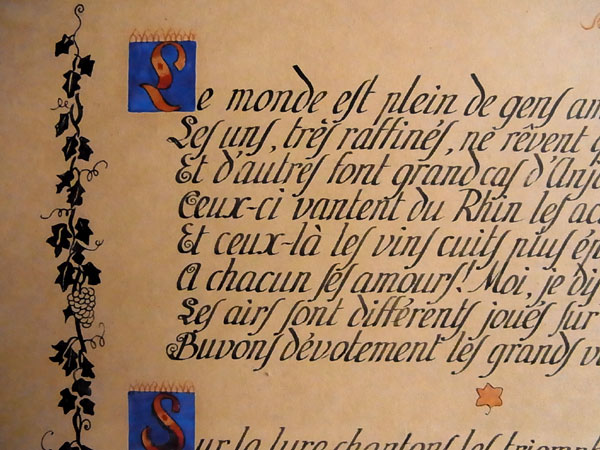 Le monde est plein de gens am
Les uns, très raffinés, ne rêvent
Et d'autres font grand cas d'Anj
Ceux-ci vantent du Rhin les ac
Et ceux-là les vins cuits plus ép
A chacun ses amours! Moi, je dis
Les airs sont différents joués sur
Buvons dévotement les grands v
Sur la lyre chantons les triomph